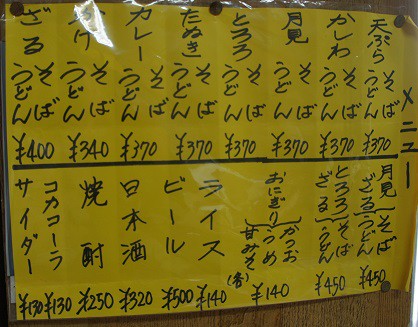 メニュー
天ぷら そば うどん ¥370
かしわ そば うどん ¥370
月見 そば うどん ¥370
とろろ そば うどん ¥370
たぬき そば うどん ¥370
カレー そば うどん ¥370
かけ そば うどん ¥340
ざる そば うどん ¥400
月見ざる そば うどん ¥450
とろろざる そば うどん ¥450
おにぎり かつお うめ 甘みそ(香) ¥140
ライス ¥140
ビール ¥500
日本酒 ¥320
焼酎 ¥250
コカコーラ ¥130
サイダー ¥130